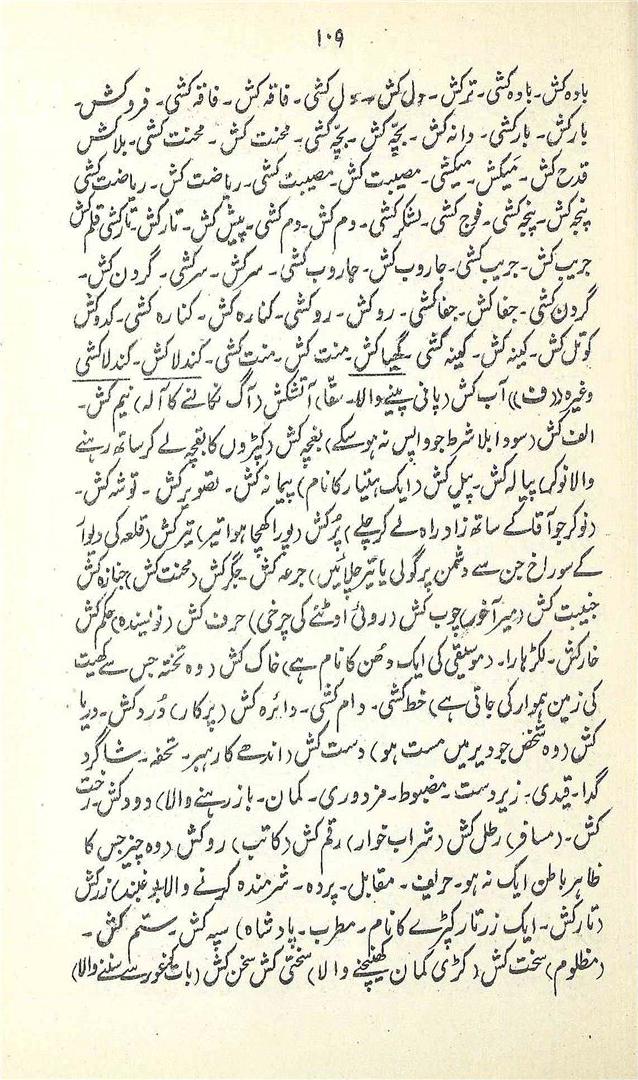 ۱۰۹
بادہ کش۔ بادہ کشی۔ ترکش۔ دل کش۔ دل کشی۔ فاقہ کش۔ فاقہ کشی۔ فروکش۔
بارکش۔ بارکشی۔ دانہ کش۔ بچّہ کش۔ بچّہ کشی۔ محنت کش۔ محنت کشی۔ بلاکش
قدح کش۔ مَیکش۔ میکشی۔ مصیبت کش۔ مصیبت کشی۔ ریاضت کش۔ ریاضت کشی
پنجہ کش۔ پنجہ کشی۔ فوج کشی۔ لشکر کشی۔ دم کش۔ دم کشی۔ پیش کش۔ تارکش۔ تارکشی قلم کش
جریب کش۔ جریب کشی۔ جاروب کش۔ جاروب کشی۔ سرکش۔ سرکشی۔ گردن کش۔
گردن کشی۔ جفا کش۔ جفا کشی۔ روکش۔ روکشی۔ کنارہ کش۔ کنارہ کشی۔ کدوکش
کوتل کش۔ کینہ کش۔ کینہ کشی۔ گھپا کش۔ منت کش۔ منت کشی۔ کندلا کش۔ کندلا کشی
وغیرہ ((ف)) آب کش (پانی پینے والا۔ سقّا) آتشکش (آگ نکالنے کا آلہ) نیم کش۔
الف کش (سودا بلا شرط جو واپس نہ ہوسکے) بغچہ کش (کپڑوں کا بغچہ لے کر ساتھ رہنے
والا نوکر) پیالہ کش۔ پیل کش (ایک ہتیار کا نام) پیمانہ کش۔ تصویر کش۔ توشہ کش۔
(نوکر جو آقا کے ساتھ زادراہ لے کر چلے) پُرکش (پورا کھچا ہوا تیر) تیرکش (قلعہ کی دیوار
کے سوراخ جن سے دشمن پر گولی یا تیر چلائیں) جرعہ کش۔ جگر کش (محنت کش) جنازہ کش
جنیبت کش (میرآخور) چوب کش (روئی اوٹنے کی چرخی) حرف کش (نویسندہ) علم کش
خارکش۔ لکڑہارا۔ (موسیقی کی ایک دھن کا نام ہے) خاک کش (وہ تختہ جس سے کھیت
کی زمین ہموار کی جاتی ہے) خط کشی۔ دام کشی۔ دائرہ کش (پرکار) دُرد کش۔ دریا
کش (وہ شخص جو دیر میں مست ہو) دست کش (اندھے کا رہبر۔ تحفہ۔ شاگرد
گدا۔ قیدی۔ زیردست۔ مضبوط۔ مزدوری۔ کمان۔ باز رہنے والا) دودکش۔ رخت
کش۔ (مسافر) رطل کش (شراب خوار) رقم کش (کاتب) روکش (وہ چیز جس کا
ظاہر باطن ایک نہ ہو۔ حریف۔ مقابل۔ پردہ۔ شرمندہ کرنے والا۔ زرکش
(تارکش۔ ایک زرتار کپڑے کا نام۔ مطرب۔ پادشاہ) سپہ کش۔ ستم کش۔
(مظلوم) سخت کش (کڑی کمان کھینچنے والا) سختی کش سخن کش (بات غور سے سننے والا)